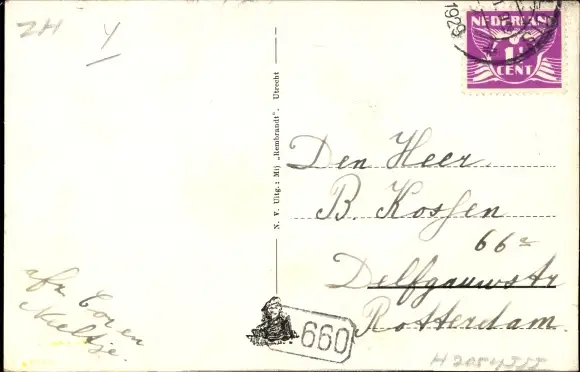 ZH
Y
1929
NEDERLAND
1½
CENT
N. V. Uitg.: Mij „Rembrandt”. Utrecht
Den Heer.
B. Kossen
66a
Delfgauwstr
Rotterdam.
afz Cor en
Neeltje.
660